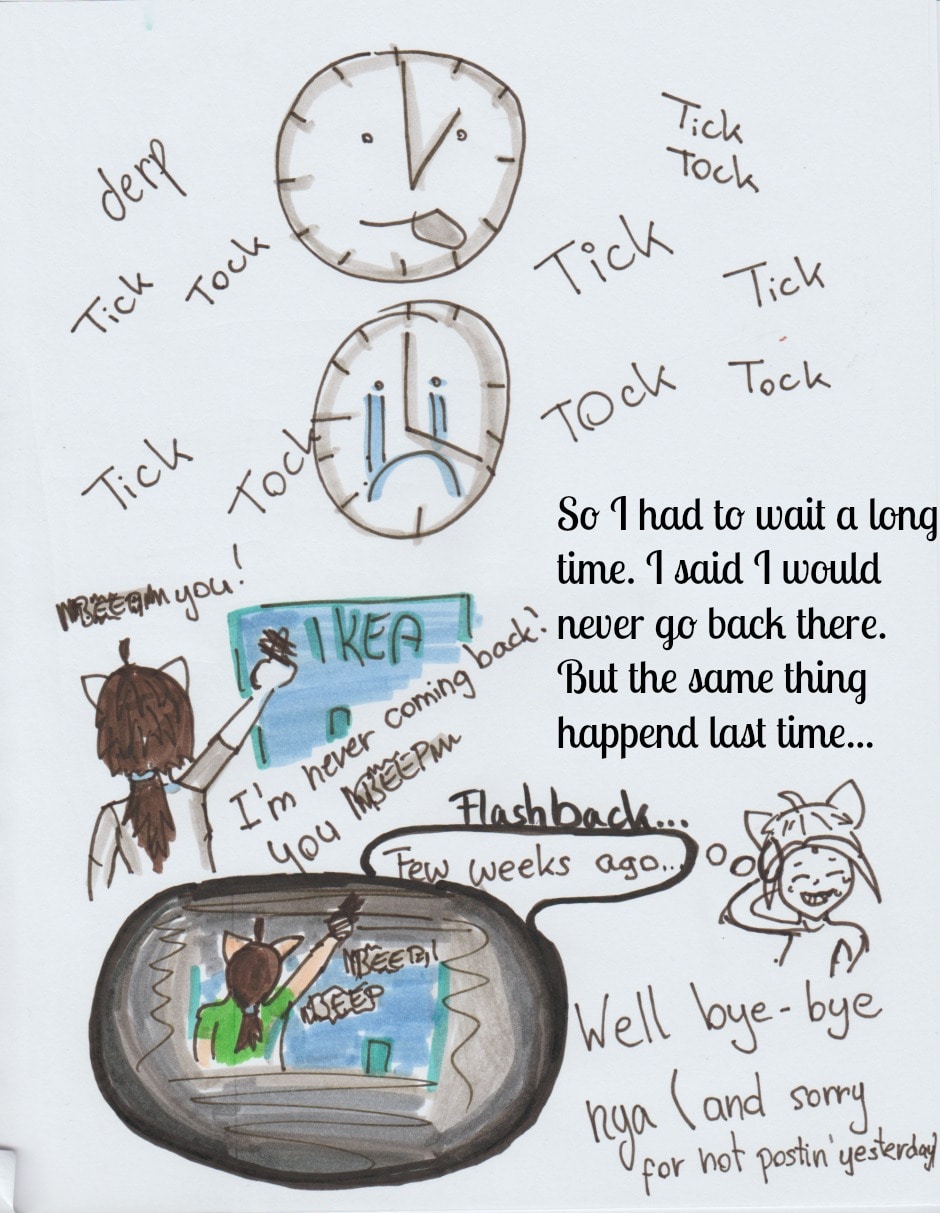 derp
Tick
Tock
Tick Tock
Tick
Tick
Tock
Tock
Tick Tock
So I had to wait a long
time. I said I would
never go back there.
But the same thing
happend last time...
BEEP you!
IKEA
I'm never coming back!
you BEEP
Flashback...
Few weeks ago...
BEEP!
BEEP
Well bye-bye
nya (and sorry
for not postin' yesterday)